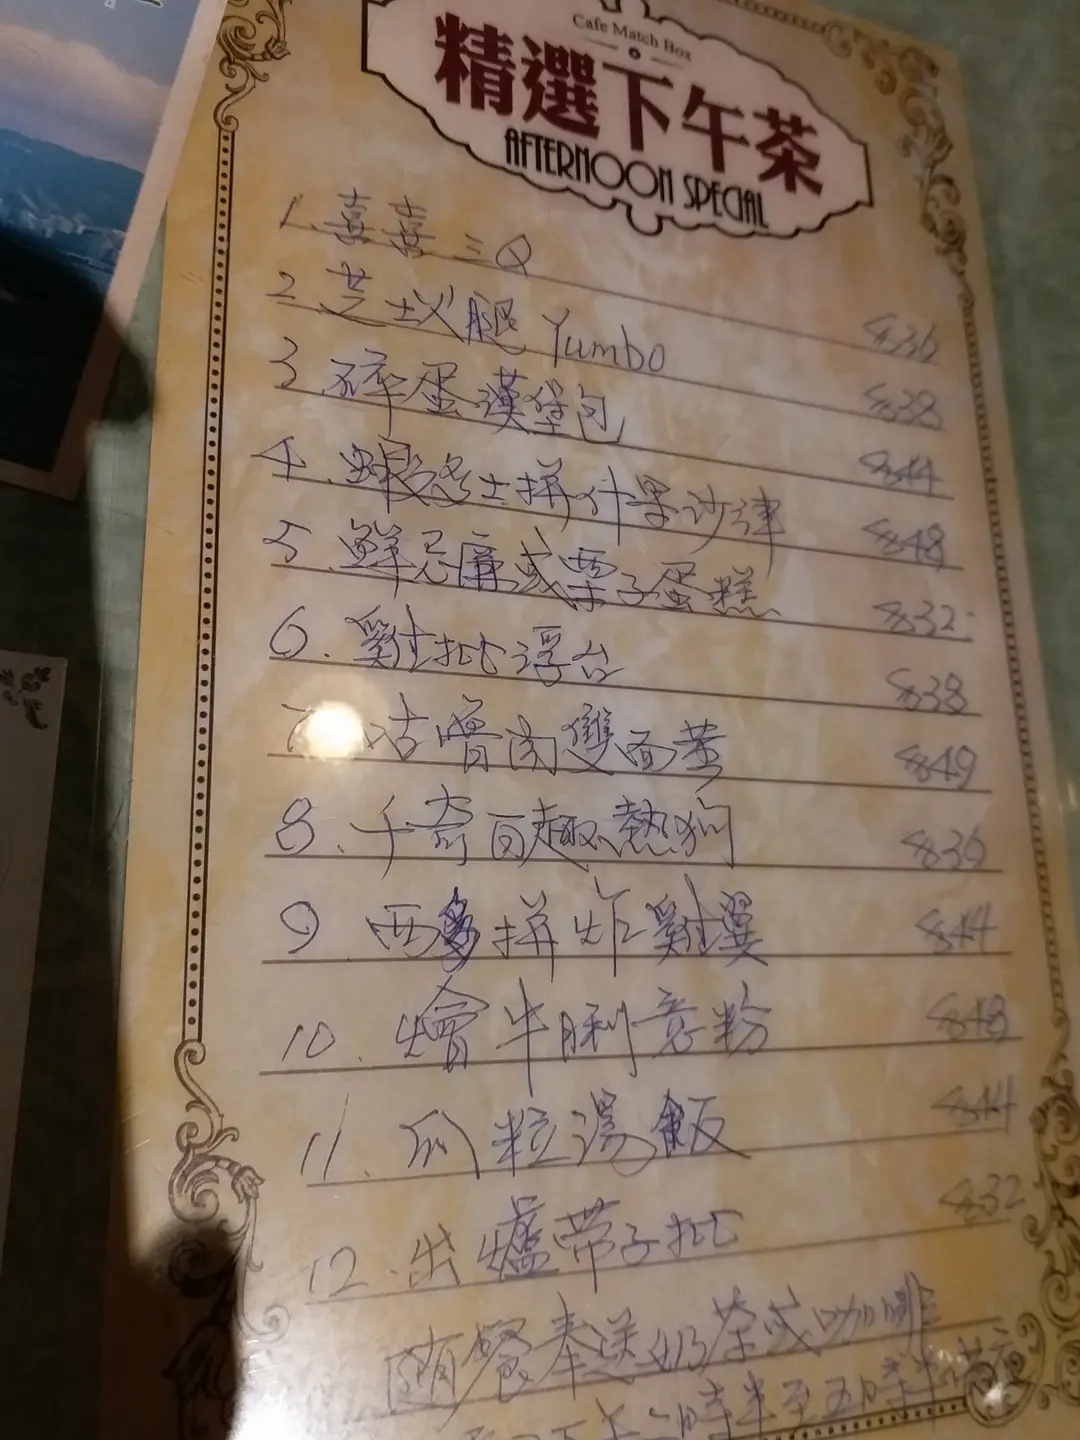 Cafe Match Box
精選下午茶
AFTERNOON SPECIAL
1. 喜喜三Q $36
2. 芝士火腿 Yumbo $38
3. 碎蛋漢堡包 $44
4. 士拼什果沙律 $48
5. 鮮忌廉或栗子蛋糕 $32
6. 雞批浮台 $38
7. 咕嚕肉雙面黃 $49
8. 千奇百趣熱狗 $36
9 西多拼炸雞翼 $44
10. 燴牛脷意粉 $48
11. 瓜粒湯飯 $44
12. 出爐帶子批 $32
隨餐奉送奶茶或咖啡
時半至五時半